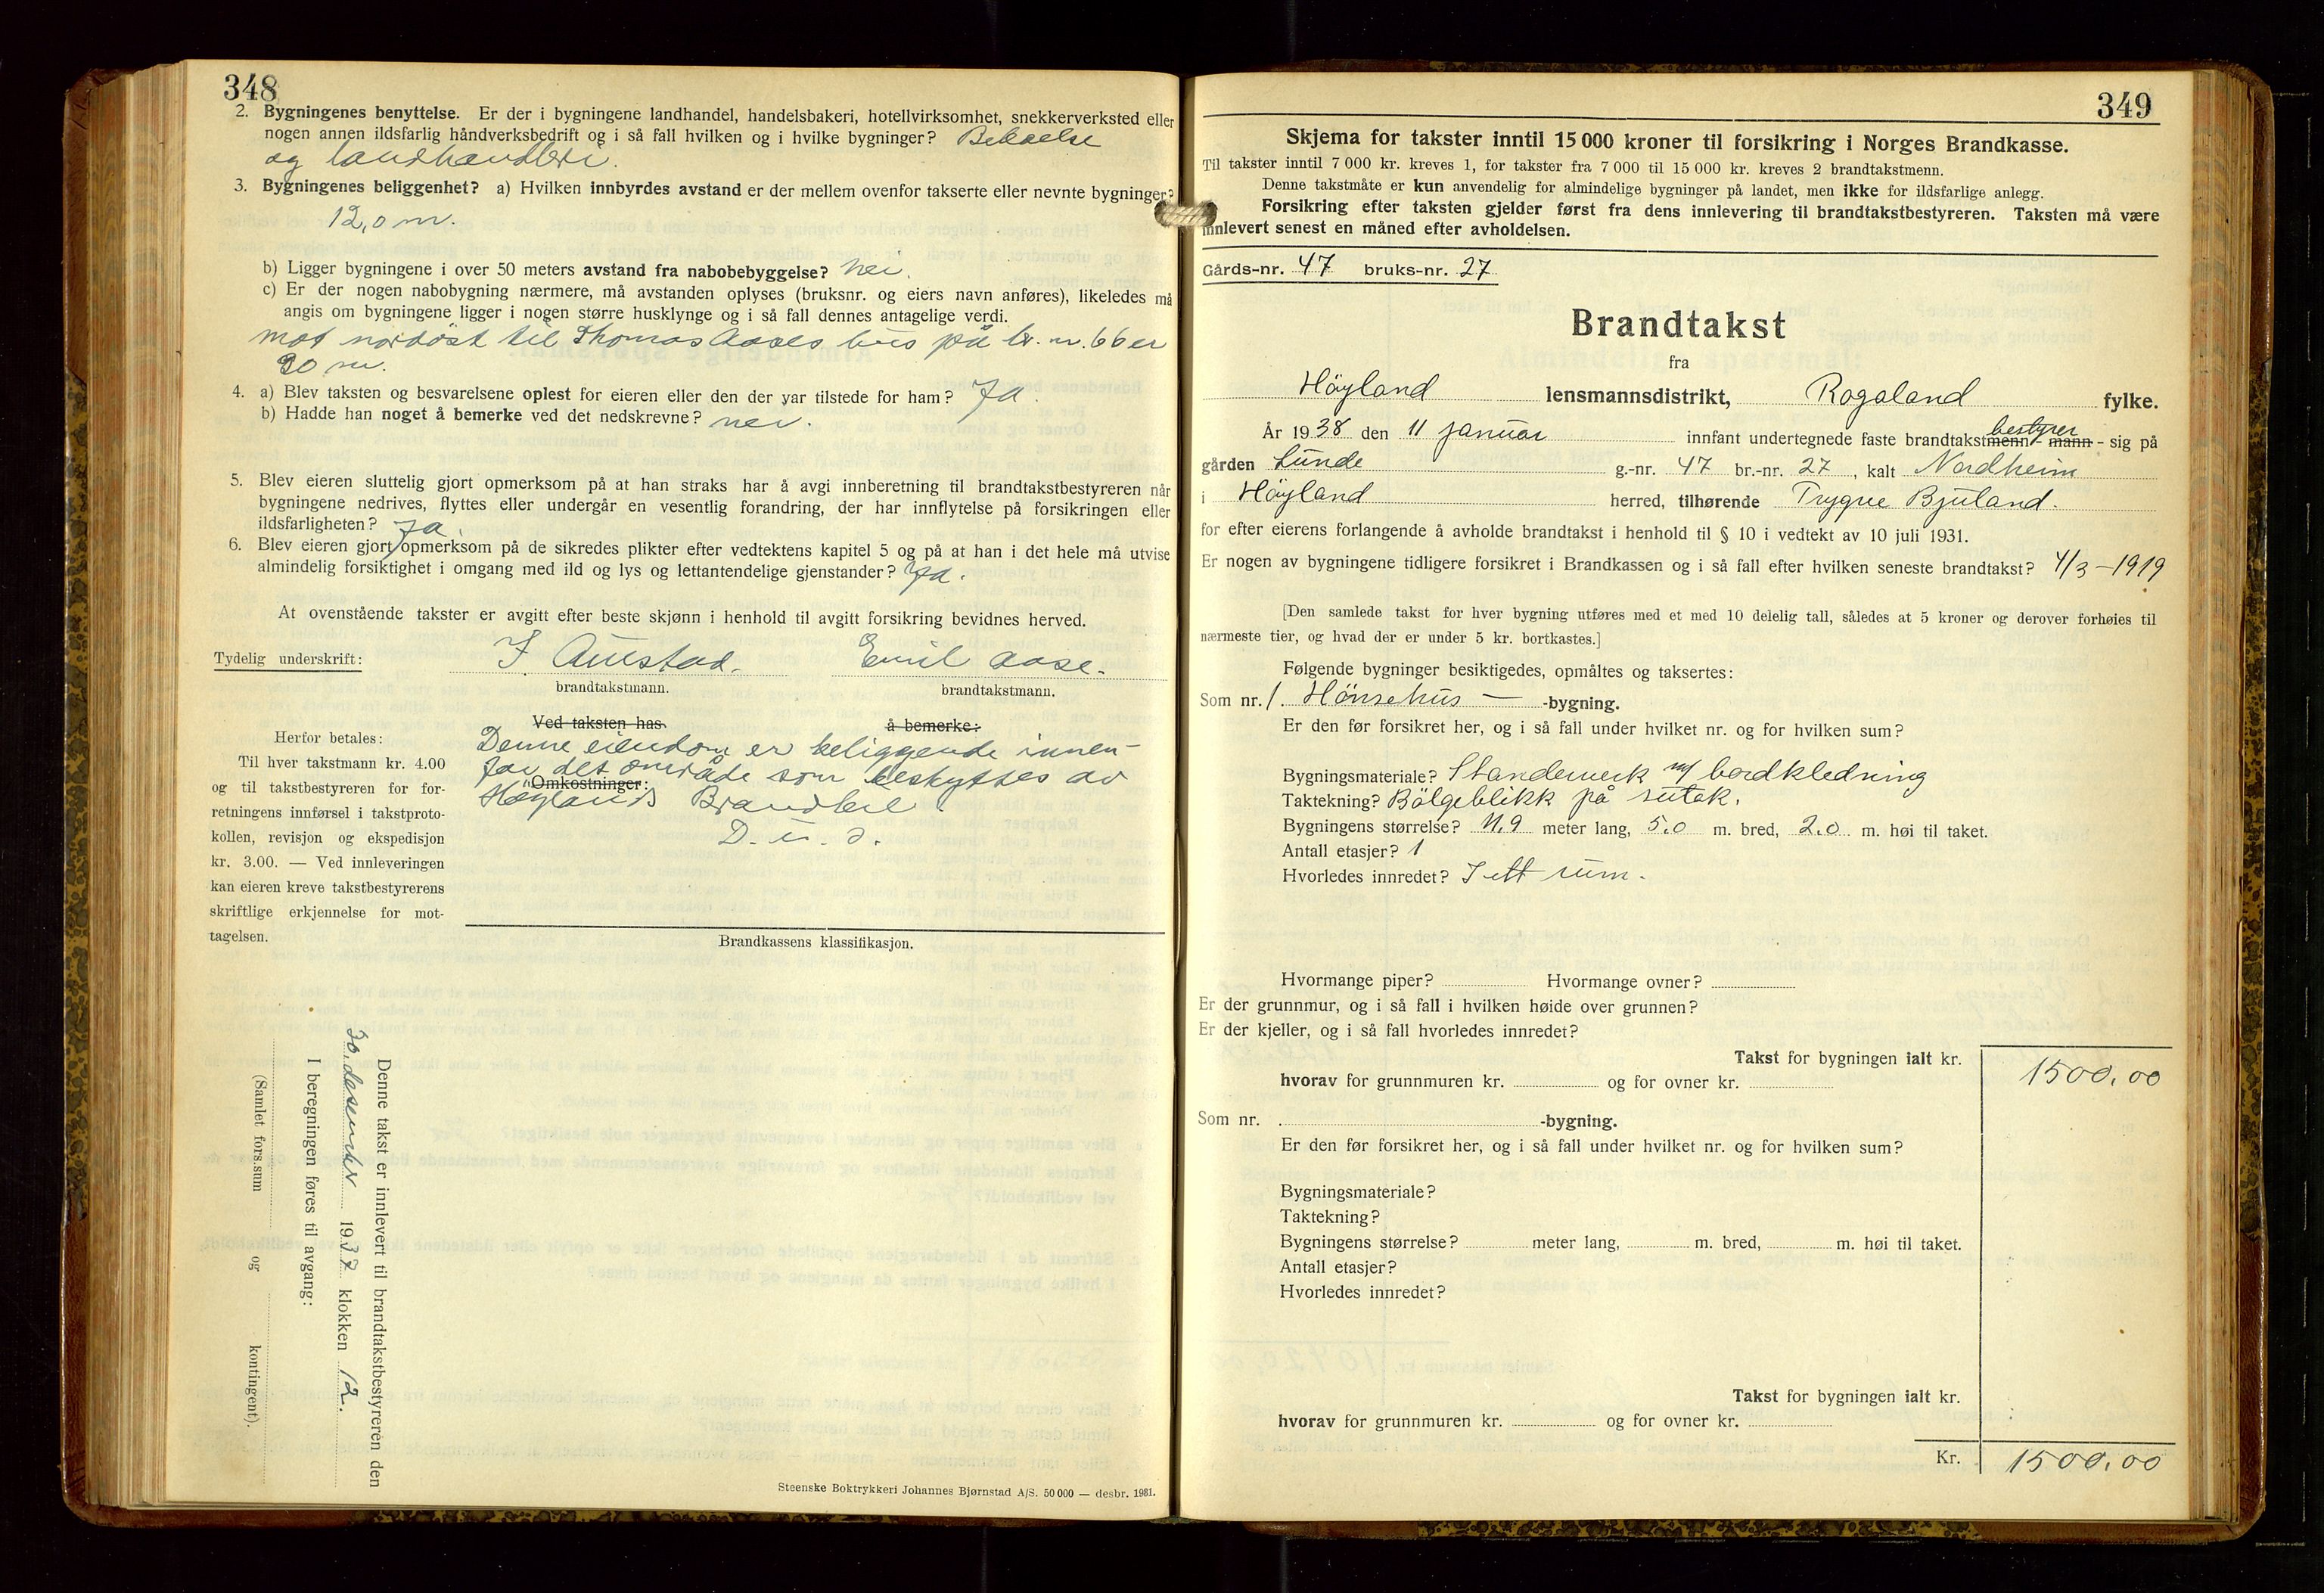 348
2. Bygningenes benyttelse. Er der i bygningene landhandel, handelsbakeri, hotellvirksomhet, snekkerverksted eller
nogen annen ildsfarlig håndverksbedrift og i så fall hvilken og i hvilke bygninger? Beboelse
og landhandleri.
3. Bygningenes beliggenhet? a) Hvilken innbyrdes avstand er der mellem ovenfor takserte eller nevnte bygninger?
12,0 m.
b) Ligger bygningene i over 50 meters avstand fra nabobebyggelse? nei.
c) Er der nogen nabobygning nærmere, må avstanden oplyses (bruksnr. og eiers navn anføres), likeledes må
angis om bygningene ligger i nogen større husklynge og i så fall dennes antagelige verdi.
mot nordöst til Thomas Aases hus på br. nr. 66 er
30 m.
4. a) Blev taksten og besvarelsene oplest for eieren eller den der var tilstede for ham? Ja.
b) Hadde han noget å bemerke ved det nedskrevne? nei.
5. Blev eieren sluttelig gjort opmerksom på at han straks har å avgi innberetning til brandtakstbestyreren når
bygningene nedrives, flyttes eller undergår en vesentlig forandring, der har innflytelse på forsikringen eller
ildsfarligheten? Ja.
6. Blev eieren gjort opmerksom på de sikredes plikter efter vedtektens kapitel 5 og på at han i det hele må utvise
almindelig forsiktighet i omgang med ild og lys og lettantendelige gjenstander? Ja.
At ovenstående takster er avgitt efter beste skjønn i henhold til avgitt forsikring bevidnes herved.
Tydelig underskrift: J. Austad. Emil Aase.
brandtakstmann. brandtakstmann.
Ved taksten has å bemerke:
Denne eiendom er beliggende innen-
for det område som beskyttes av
Omkostninger:
Høylands Brandbil
D. u. s.
Herfor betales:
Til hver takstmann kr. 4.00
og til takstbestyreren for for-
retningens innførsel i takstproto-
kollen, revisjon og ekspedisjon
kr. 3.00. — Ved innleveringen
kan eieren kreve takstbestyrerens
skriftlige erkjennelse for mot-
tagelsen.
Brandkassens klassifikasjon.
Denne takst er innlevert til brandtakstbestyreren den
30. desember 1937 klokken 12.
I beregningen føres til avgang:
(Samlet fors.sum og kontingent).
Steenske Boktrykkeri Johannes Bjørnstad A/S. 50 000 — desbr. 1931.
349
Skjema for takster inntil 15 000 kroner til forsikring i Norges Brandkasse.
Til takster inntil 7 000 kr. kreves 1, for takster fra 7 000 til 15 000 kr. kreves 2 brandtakstmenn.
Denne takstmåte er kun anvendelig for almindelige bygninger på landet, men ikke for ildsfarlige anlegg.
Forsikring efter taksten gjelder først fra dens innlevering til brandtakstbestyreren. Taksten må være
innlevert senest en måned efter avholdelsen.
Gårds-nr. 47 bruks-nr. 27
Brandtakst
fra
Höyland lensmannsdistrikt, Rogaland fylke.
bestyrer
År 1938 den 11 januar innfant undertegnede faste brandtakstmenn - mann - sig på
gården Lunde g.-nr. 47 br.-nr. 27, kalt Nordheim
i Höyland herred, tilhørende Trygve Bjuland.
for efter eierens forlangende å avholde brandtakst i henhold til § 10 i vedtekt av 10 juli 1931.
Er nogen av bygningene tidligere forsikret i Brandkassen og i så fall efter hvilken seneste brandtakst? 4/3-1919
[Den samlede takst for hver bygning utføres med et med 10 delelig tall, således at 5 kroner og derover forhøies til
nærmeste tier, og hvad der er under 5 kr. bortkastes.]
Følgende bygninger besiktigedes, opmåltes og taksertes:
Som nr. 1. Hönsehus — -bygning.
Er den før forsikret her, og i så fall under hvilket nr. og for hvilken sum?
Bygningsmateriale? Standerverk m/ bordkledning
Taktekning? Bölgeblikk på sutak.
Bygningens størrelse? 11.9 meter lang, 5.0 m. bred, 2.0 m. høi til taket.
Antall etasjer? 1
Hvorledes innredet? I ett rum.
Hvormange piper? Hvormange ovner?
Er der grunnmur, og i så fall i hvilken høide over grunnen?
Er der kjeller, og i så fall hvorledes innredet?
Takst for bygningen ialt kr. 1500.00
hvorav for grunnmuren kr. og for ovner kr.
Som nr. -bygning.
Er den før forsikret her, og i så fall under hvilket nr. og for hvilken sum?
Bygningsmateriale?
Taktekning?
Bygningens størrelse? meter lang, m. bred, m. høi til taket.
Antall etasjer?
Hvorledes innredet?
Takst for bygningen ialt kr.
hvorav for grunnmuren kr. og for ovner kr.
Kr. 1500.00